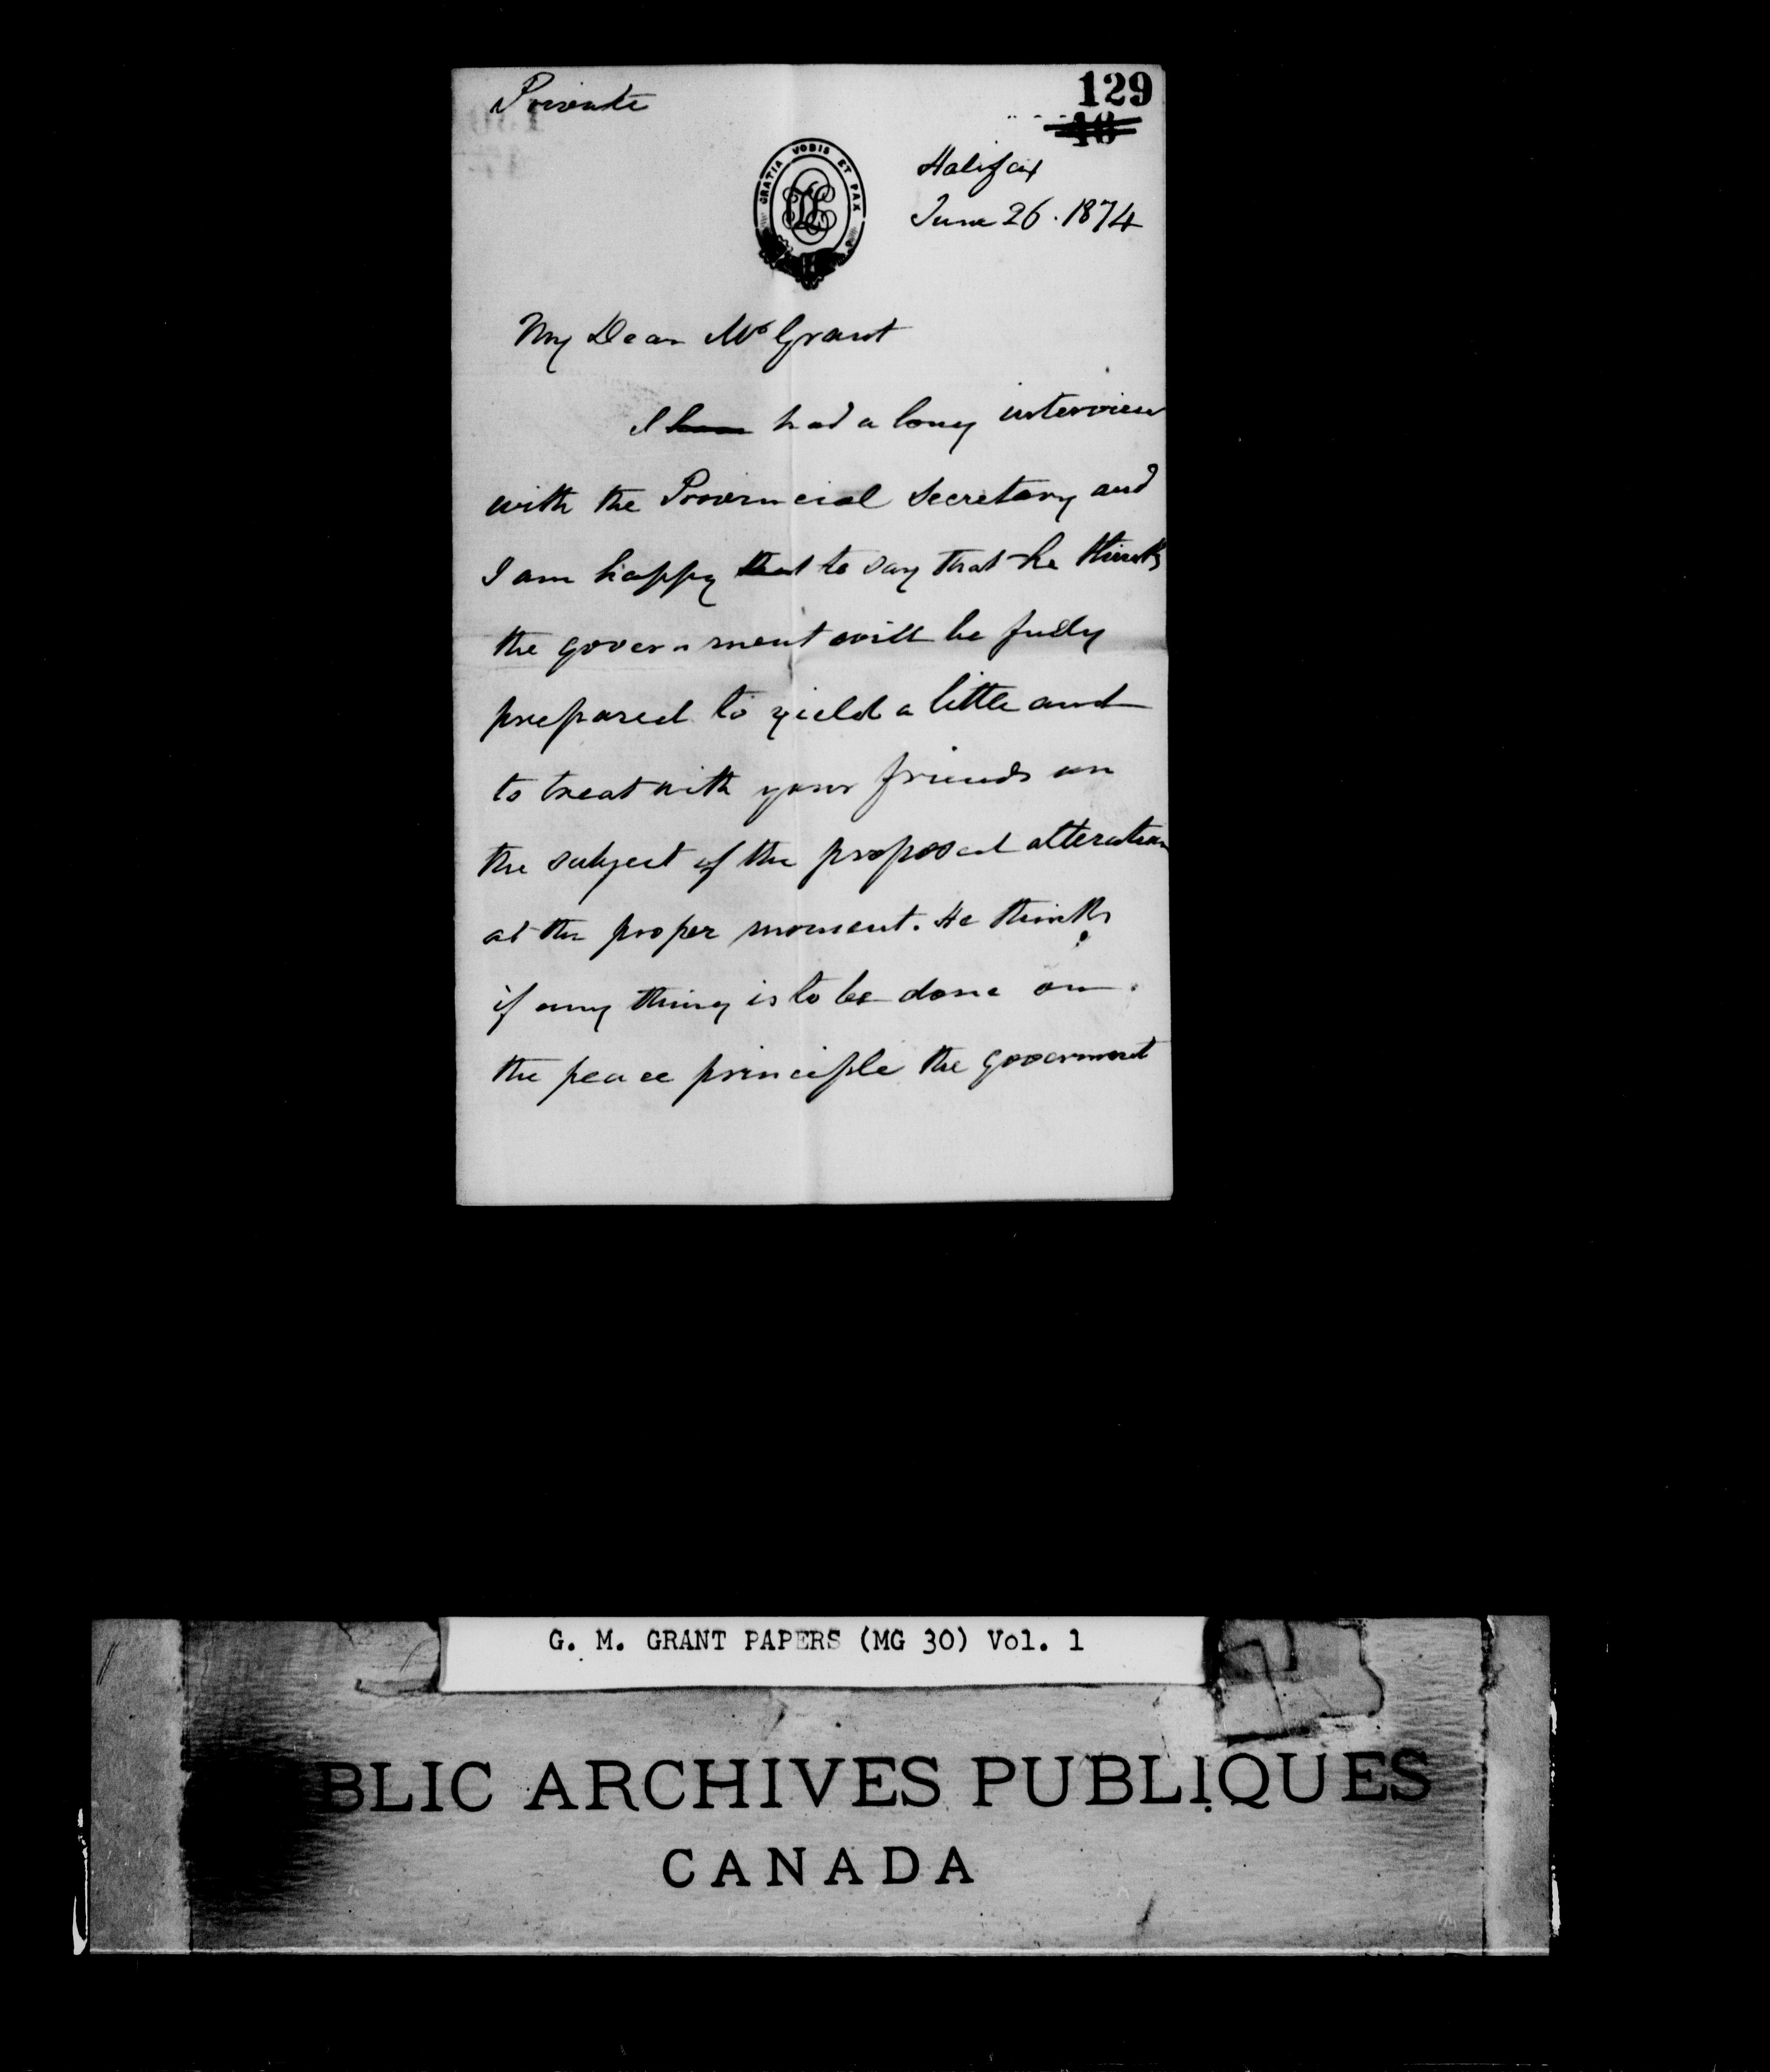 Private
129
46
GRATIA VOBIS ET PAX
Halifax
June 26. 1874
My Dear Mr Grant
I had a long interview
with the Provincial Secretary and
I am happy that to say that he thinks
the government will be fully
prepared to yield a little and
to treat with your friends on
the subject of the proposed alteration
at the proper moment. He thinks
if any thing is to be done on
the peace principle the government
G. M. GRANT PAPERS (MG 30) Vol. 1
BLIC ARCHIVES PUBLIQUES
CANADA